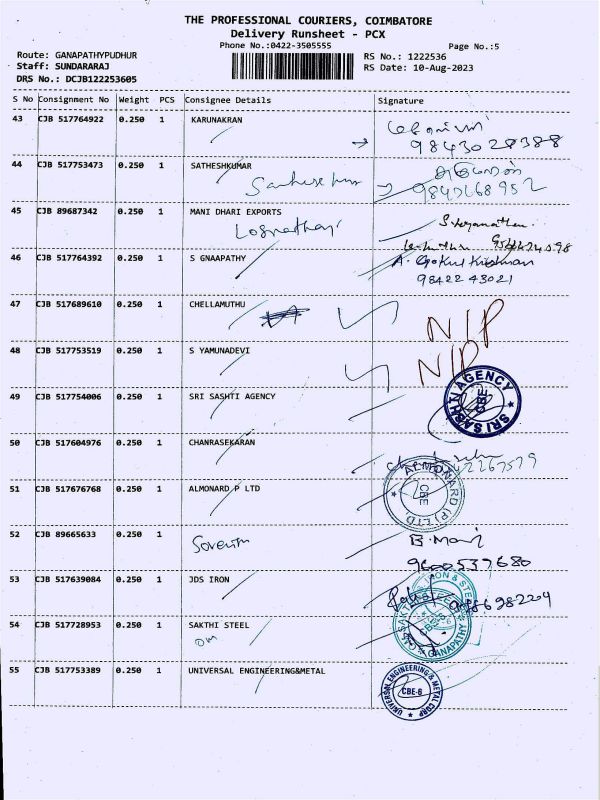 THE PROFESSIONAL COURIERS, COIMBATORE
Delivery Runsheet - PCX
Phone No.:0422-3505555 Page No.:5
Route: GANAPATHYPUDHUR RS No.: 1222536
Staff: SUNDARARAJ RS Date: 10-Aug-2023
DRS No.: DCJB122253605
S No Consignment No Weight PCS Consignee Details Signature
43 CJB 517764922 0.250 1 KARUNAKRAN
9843028388
44 CJB 517753473 0.250 1 SATHESHKUMAR
45 CJB 89687342 0.250 1 MANI DHARI EXPORTS
46 CJB 517764392 0.250 1 S GNAAPATHY A. Gokul Krishnan
98422 43021
47 CJB 517689610 0.250 1 CHELLAMUTHU N/P
48 CJB 517753519 0.250 1 S YAMUNADEVI N/P
49 CJB 517754006 0.250 1 SRI SASHTI AGENCY SRI SASHTI AGENCY CBE
50 CJB 517604976 0.250 1 CHANRASEKARAN
51 CJB 517676768 0.250 1 ALMONARD P LTD ALMONARD (P) LTD CBE
52 CJB 89665633 0.250 1 B. Mani
9600537680
53 CJB 517639084 0.250 1 JDS IRON
54 CJB 517728953 0.250 1 SAKTHI STEEL GANAPATHY
om
55 CJB 517753389 0.250 1 UNIVERSAL ENGINEERING&METAL UNIVERSAL ENGINEERING & METAL CORP CBE-6